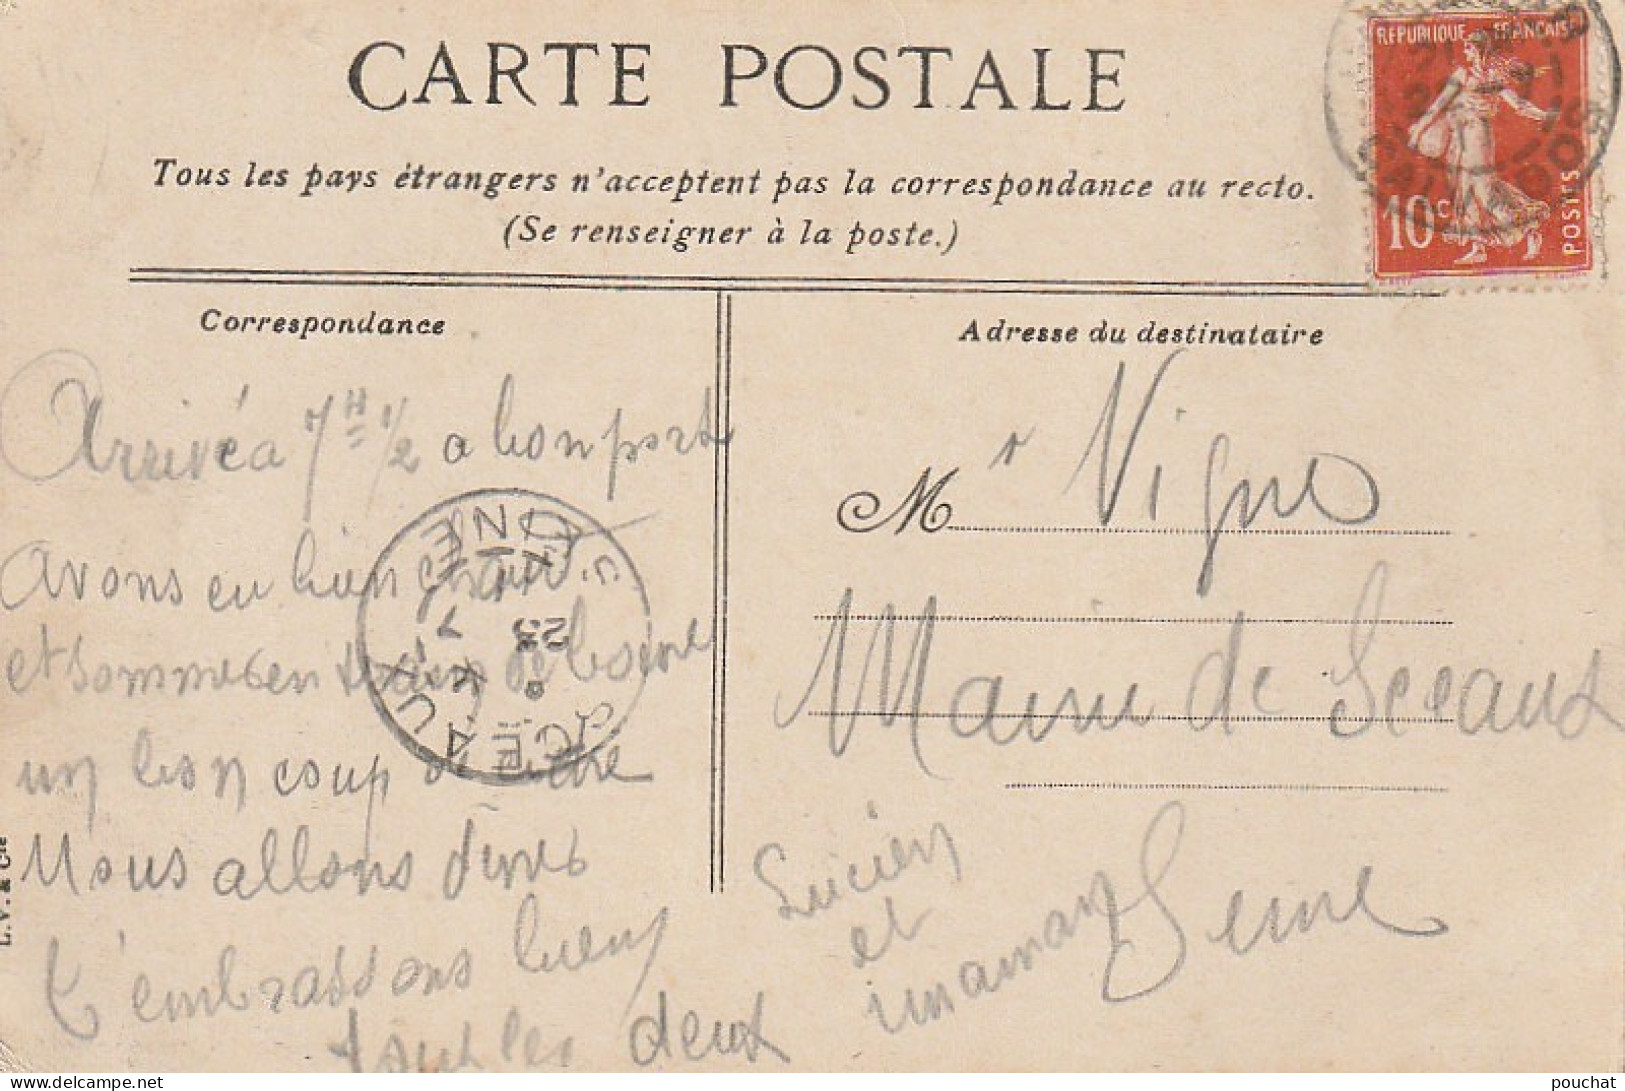 CARTE POSTALE
Tous les pays étrangers n'acceptent pas la correspondance au recto.
(Se renseigner à la poste.)
REPUBLIQUE FRANÇAISE
10c
POSTES
Correspondance
Arrivé a 7H 1/2 a bon port
avons eu bien chaud
et sommes en train de boire
un bon coup de bière
Nous allons diner
t'embrassons bien
tout les deux
Lucien
et
maman
Adresse du destinataire
Mr Vigne
Mairie de Sceaux
Seine
SCEAUX
SEINE
23
L.V. & Cie
pouchat